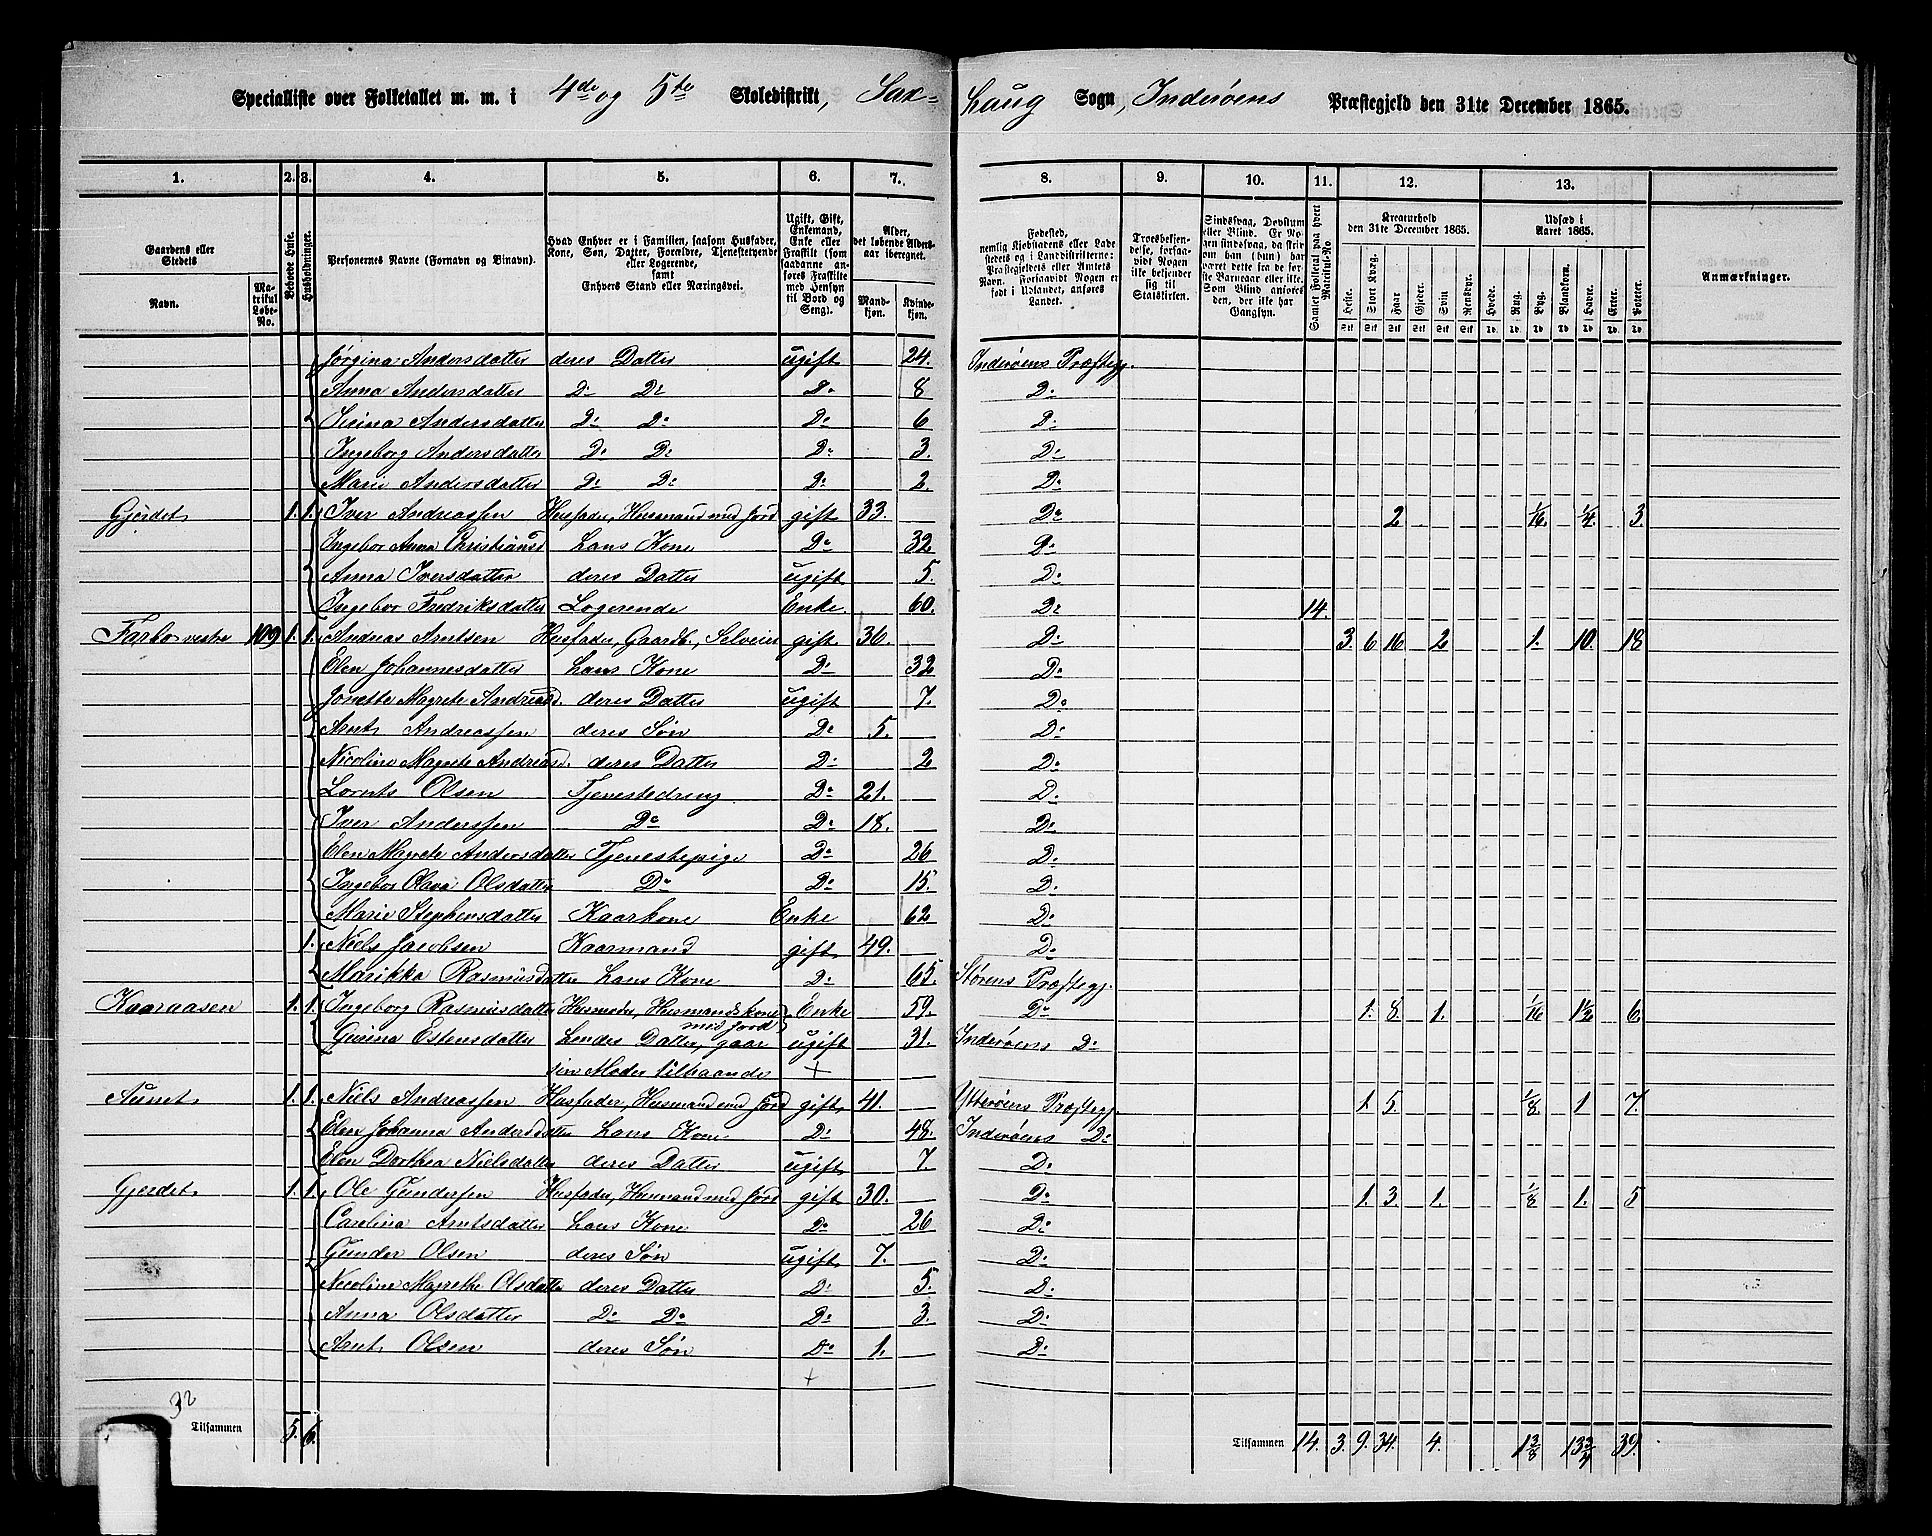 Specialliste over Folketallet m. m. i 4de og 5te Skoledistrikt, Sax= haug Sogn, Inderøens Præstegjeld den 31te December 1865.
1. 2. 3. 4. 5. 6. 7. 8. 9. 10. 11. 12. 13.
Gaardens eller Stedets
Navn.
Matrikul Løbe-No.
Beboede Huse.
Husholdninger.
Personernes Navne (Fornavn og Binavn).
Hvad Enhver er i Familien, saasom Husfader, Kone, Søn, Datter, Forældre, Tjenestetyende eller Logerende, samt Enhvers Stand eller Næringsvei.
Ugift, Gift, Enkemand, Enke eller Fraskilt (som saadanne anføres Fraskilte med Hensyn til Bord og Seng).
Alder, det løbende Aldersaar iberegnet.
Mandkjøn. Kvindekjøn.
Fødested, nemlig Kjøbstadens eller Ladestedets og i Landdistrikterne: Præstegjeldets eller Amtets Navn. Forsaavidt Nogen er født i Udlandet, anføres Landet.
Troesbekjendelse, forsaavidt Nogen ikke bekjender sig til Statskirken.
Sindssvag, Døvstum eller Blind. Er Nogen sindssvag, da skrives om han (hun) har været dette fra de første Barneaar eller ikke. Som Blind anføres den, der ikke har Gangsyn.
Samlet Folketal paa hvert Matrikul-No.
Kreaturhold den 31te December 1865.
Heste. Stort Kvæg. Faar. Gjeder. Svin. Rensdyr.
Udsæd i Aaret 1865.
Hvede. Rug. Byg. Blandkorn. Havre. Erter. Poteter.
Anmærkninger.
Jørgina Andersdatter deres Datter ugift 24. Inderøens Præstegj.
Anna Andersdatter Do Do Do 8 Do
Sirina Andersdatter Do Do Do 6 Do
Ingeborg Andersdatter Do Do Do 3. Do
Marie Andersdatter Do Do Do 2. Do
Gjerdet 1. 1. Iver Andreassen Husfader, Huusmand med Jord gift 33. Do 2 1/16. 1/4 3.
Ingebor Anna Christiansd hans Kone Do 32 Do
Anna Iversdatter deres Datter ugift 5. Do
Ingebor Fredriksdatter Logerende Enke. 60. Do 14.
Farbo vestre 109 1. 1. Andreas Arntsen Husfader, Gaardb., Selveier gift 36. Do 3. 6 16 2 1. 10. 18
Elen Johannesdatter hans Kone Do 32 Do
Jonette Magrete Andreasd. deres Datter ugift 7. Do
Arnt Andreassen deres Søn Do 5. Do
Nicoline Magrete Andreasd. deres Datter Do 2 Do
Lornts Olsen Tjenestedreng Do 21. Do
Iver Anderssen Do Do 18. Do
Elen Magrete Andersdatter Tjenestepige Do 26 Do
Ingebor Olava Olsdatter Do Do 15. Do
Marie Stephensdatter Kaarkone Enke 62 Do
1. Niels Jacobsen Kaarmand gift 49. Do
Marikka Rasmusdatter hans Kone Do 65. Størens Præstegj.
Kaaraasen 1. 1. Ingeborg Rasmusdatter Husmoder, Husmandskone med Jord Enke 59. Do 1. 8 1. 1/16 1 1/2 6.
Gurina Estensdatter hendes Datter, gaar ugift 31. Inderøens Do
sin Moder tilhaande +
Aunet 1. 1. Niels Andreassen Husfader, Huusmand med Jord gift 41. Ytterøens Præstegj. 1. 5. 1/8. 1 7.
Elen Johanna Andersdatter hans Kone Do 48. Inderøens Do
Elen Dorthea Nielsdatter deres Datter ugift 7. Do
Gjerdet 1. 1. Ole Gundersen Husfader, Huusmand med Jord gift 30. Do 1. 3. 1. 1/8 1. 5
Carolina Arntsdatter hans Kone Do 26 Do
Gunder Olsen deres Søn ugift 7. Do
Nicoline Magrethe Olsdatter deres Datter Do 5. Do
Anna Olsdatter Do Do Do 3. Do
Arnt Olsen deres Søn Do 1. Do
+
32
Tilsammen 5. 6. Tilsammen 14. 3. 9. 34. 4. 1 3/8 13 3/4 39.